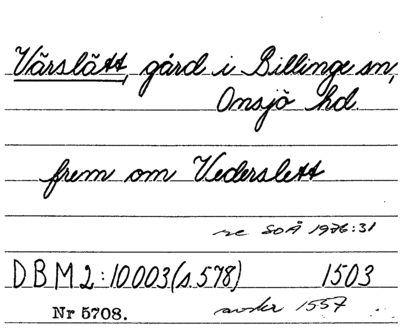 Värslätt, gård i Billinge sn,
Onsjö hd.
frem om Vederslett
se SOÅ 1976:31
DBM2:10003(s.578) 1503
Nr 5708. 1557